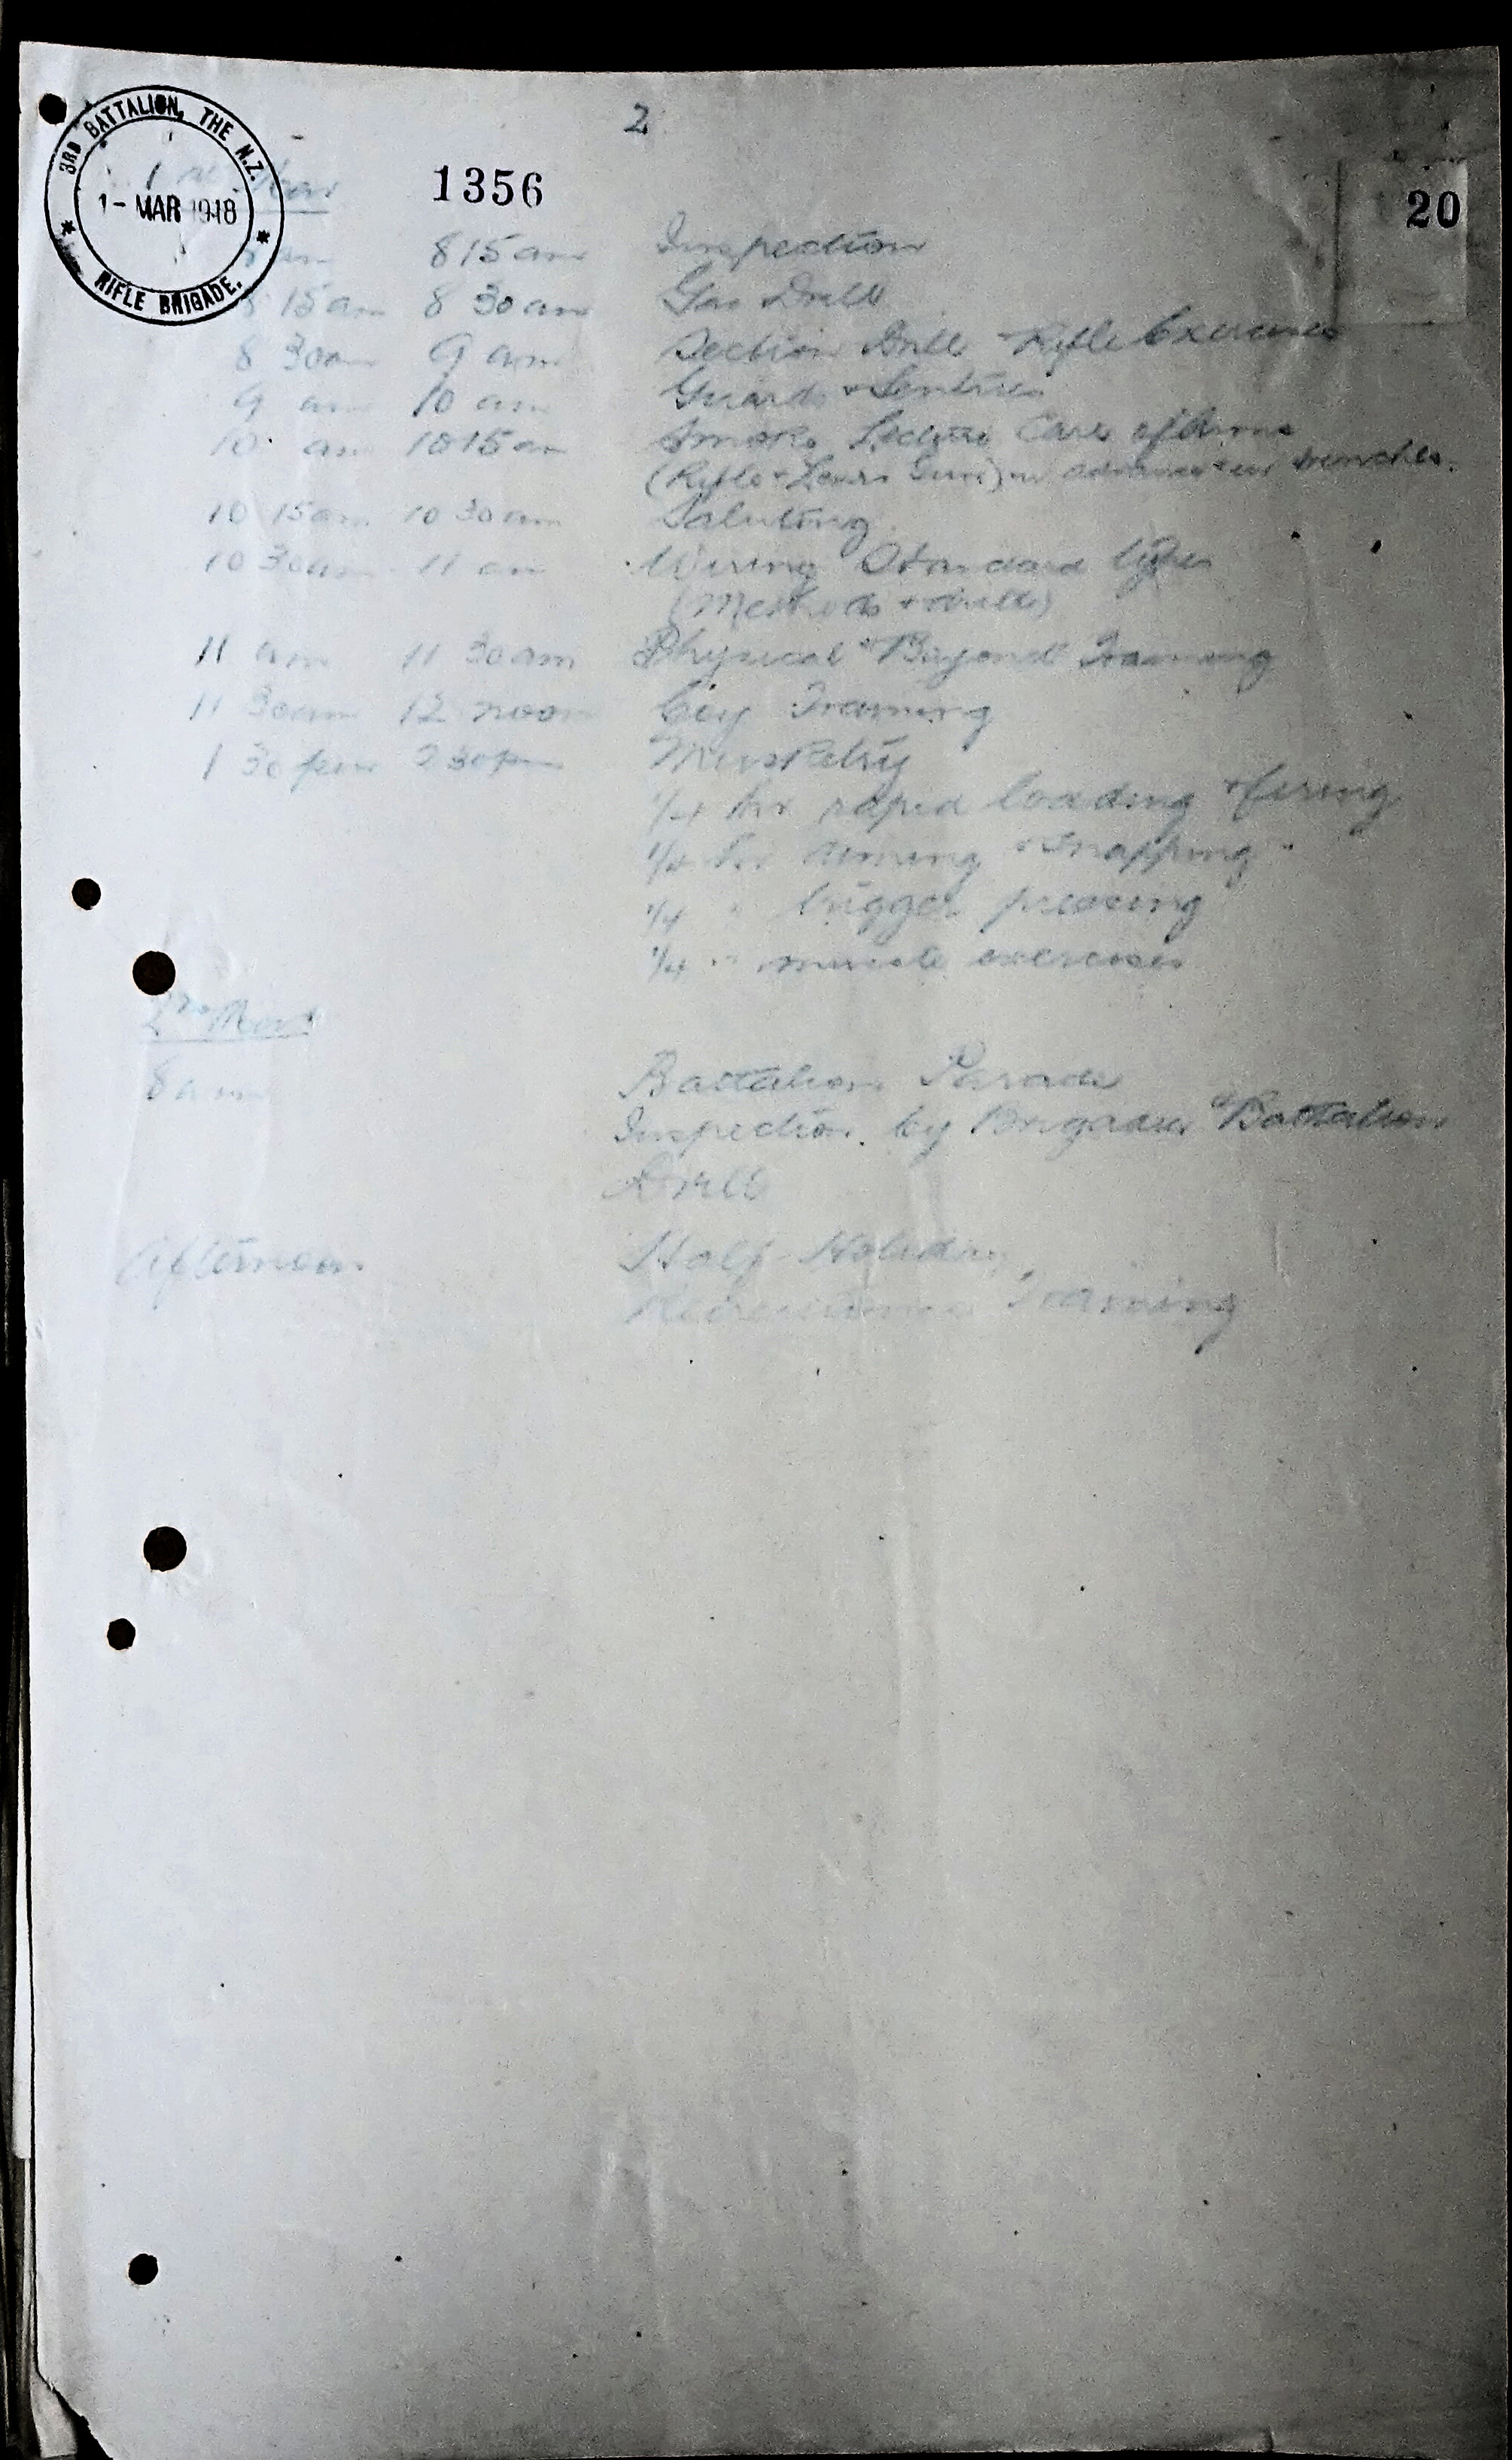 2
3RD BATTALION, THE N.Z.
1 - MAR 1918
RIFLE BRIGADE.
1356
20
8 am 8 15 am Inspection
8 15 am 8 30 am Gas Drill
8 30 am 9 am Section Drill + Rifle Exercises
9 am 10 am Guards + Sentries
10 am 10 15 am Smoke Lecture Care of Arms
(Rifle + Lewis Gun) in advance + in trenches.
10 15 am 10 30 am Saluting
10 30 am 11 am Wiring Standard types
(Methods + drills)
11 am 11 30 am Physical + Bayonet Training
11 30 am 12 noon Coy Training
1 30 pm 2 30 pm Musketry
1/4 hr rapid loading + firing
hr aiming + snapping
1/4 " trigger pressing
1/4 " muscle exercises
2nd March
8 am Battalion Parade
Inspection by Brigadier + Battalion
Drill
Afternoon Half-Holiday
Recreational Training